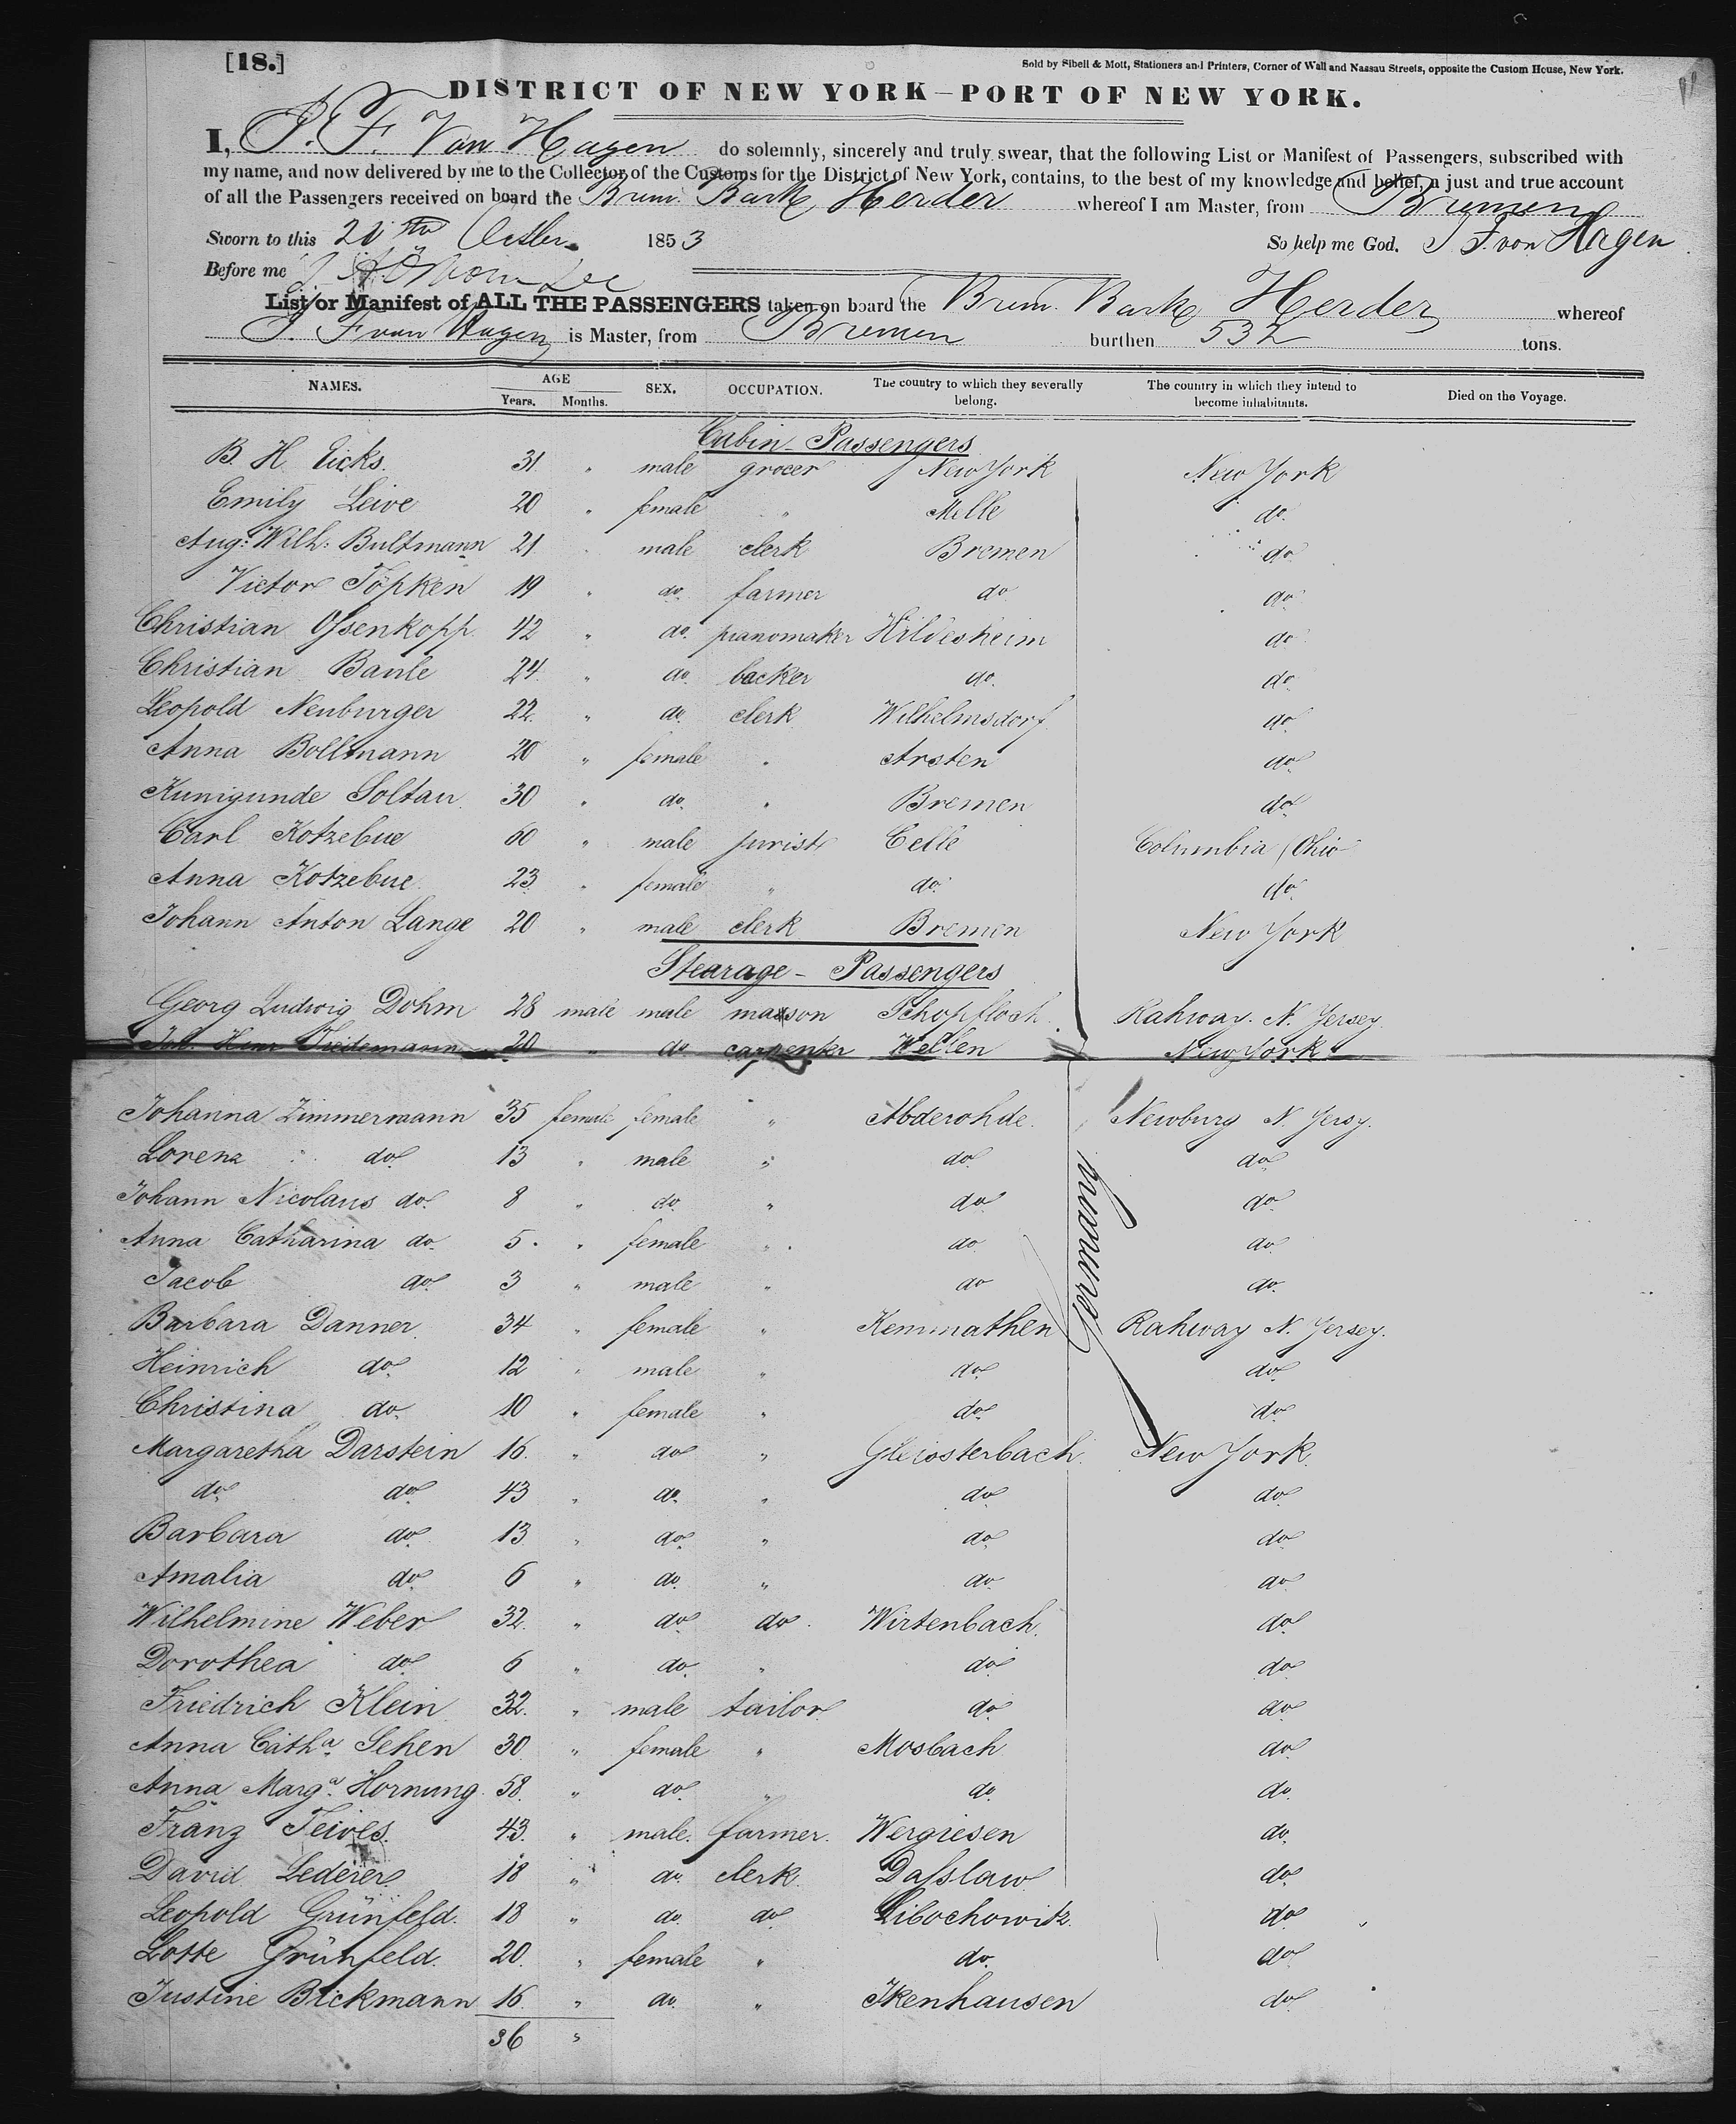 [18.]
Sold by Sibell & Mott, Stationers and Printers, Corner of Wall and Nassau Streets, opposite the Custom House, New York.
DISTRICT OF NEW YORK—PORT OF NEW YORK.
I, P. F. Von Hagen do solemnly, sincerely and truly swear, that the following List or Manifest of Passengers, subscribed with
my name, and now delivered by me to the Collector of the Customs for the District of New York, contains, to the best of my knowledge and belief, a just and true account
of all the Passengers received on board the Brem. Bark Herder whereof I am Master, from Bremen
Sworn to this 20th 1853 So help me God. F. von Hagen
Before me
List or Manifest of ALL THE PASSENGERS taken on board the Brem. Bark Herder whereof
F von Hagen is Master, from Bremen burthen 532 tons.
NAMES. AGE SEX. OCCUPATION. The country to which they severally belong. The country in which they intend to become inhabitants. Died on the Voyage.
Years. Months.
Cabin Passengers
B. H. Eicks. 31 " male grocer New York New York
Emily Leive 20 " female " Melle do.
Aug: Wilh: Bultmann 21 male clerk Bremen do
Victor Töpken 19 " do. farmer do do
Christian Ossenkopp. 42 " do. pianomaker Hildesheim do
Christian Banle 24 " do. backer do. do
Leopold Neuburger 22 " do clerk Wilhelmsdorf do
Anna Bollmann 20 " female " Arsten do
Kunigunde Soltau 30 " do. " Bremen do
Carl Kotzebue 60 " male jurist Celle Columbia (Ohio
Anna Kotzebue 23 " female " do. do.
Johann Anton Lange 20 " male clerk Bremen New York
Stearage - Passengers
Georg Ludwig Dohm 28 male male masson Schopfloch Rahway. N. Yersey
Joh. Henr Freidemann 20 " do carpenter Wellen New York
Johanna Zimmermann 35 female female " Abderohde. Newburg N. Yersy.
Lorenz do 13 " male " do do
Johann Nicolaus do. 8 " do. " do do
Anna Catharina do. 5. " female " do do
Jacob do 3 " male " do do.
Germany
Barbara Danner 34 " female " Kemmathen Rahway N. Yersey.
Heinrich do 12 " male " do do
Christina do. 10 " female " do do
Margaretha Darstein 16. " do " Gleiosterbach. New York
do do 43 " do. " do do
Barbara do 13 " do. " do do
Amalia do 6 " do. " do do
Wilhelmine Weber 32. " do do. Wirtenbach. do
Dorothea do 6 " do. " do do
Friedrich Klein 32. " male tailor do do
Anna Catha. Sehen 30 " female " Mosbach do
Anna Marga. Hornung 58. " do " do. do.
Franz Teives. 43. " male. farmer. Wergiesen do.
David Lederer 18 " do. clerk. Dasslaw do
Leopold Grünfeld. 18 " do. do Libochowitz. do
Lotte Grünfeld. 20. " female " do. do
Justine Bickmann 16. " do. " Ikenhausen do
36 "